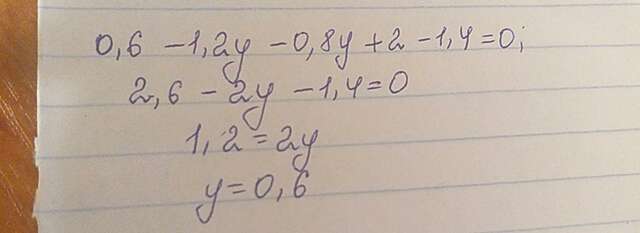 0,6 -1,2y -0,8y +2 -1,4=0;
2,6 - 2y -1,4=0
1,2 = 2y
y=0,6